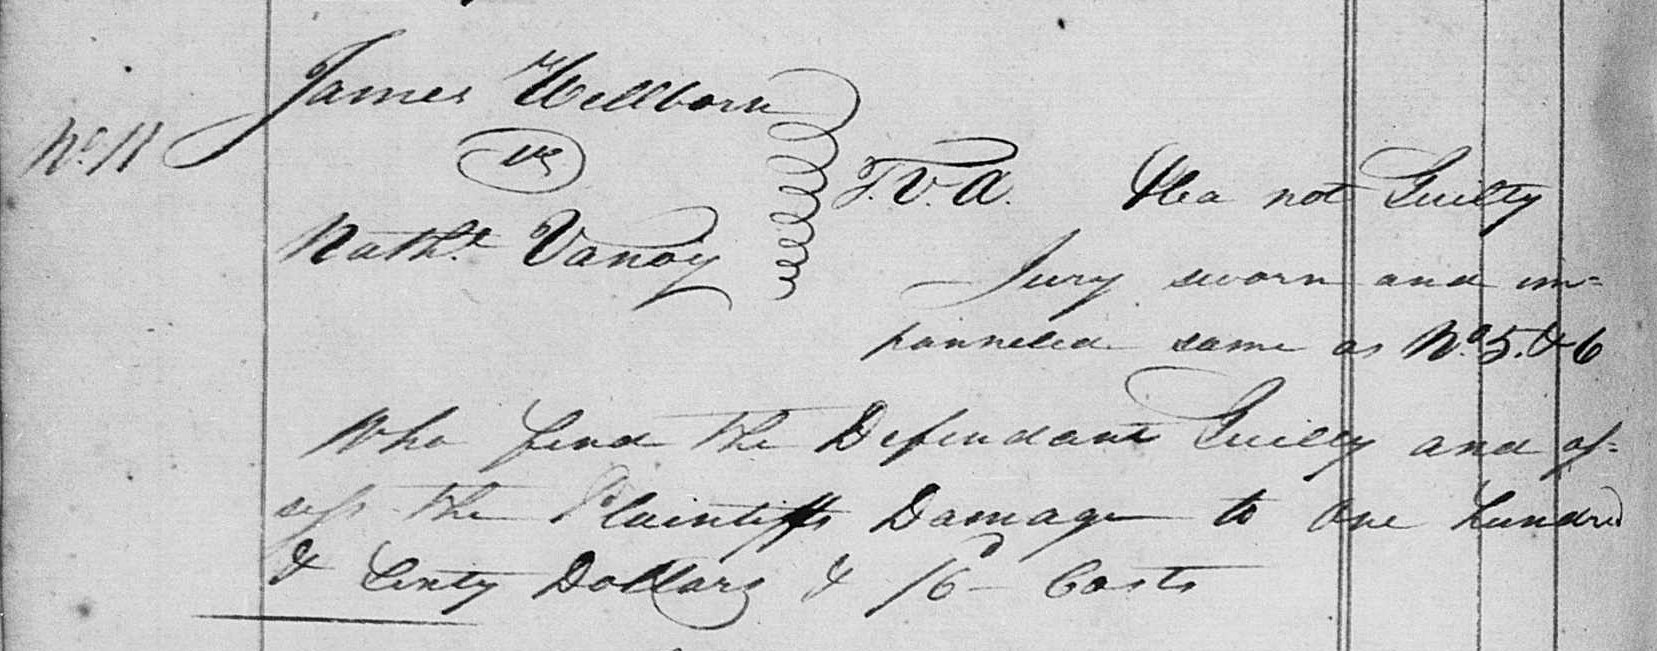 James Wellborn
No. 11
vs
T.V.A. Plea not Guilty
Nathl. Vanoy
Jury sworn and im=
panneled same as No. 5. & 6
Who find the Defendant Guilty and as=
sess the Plaintiffs Damage to One hundred
& Dollars & 6d Costs